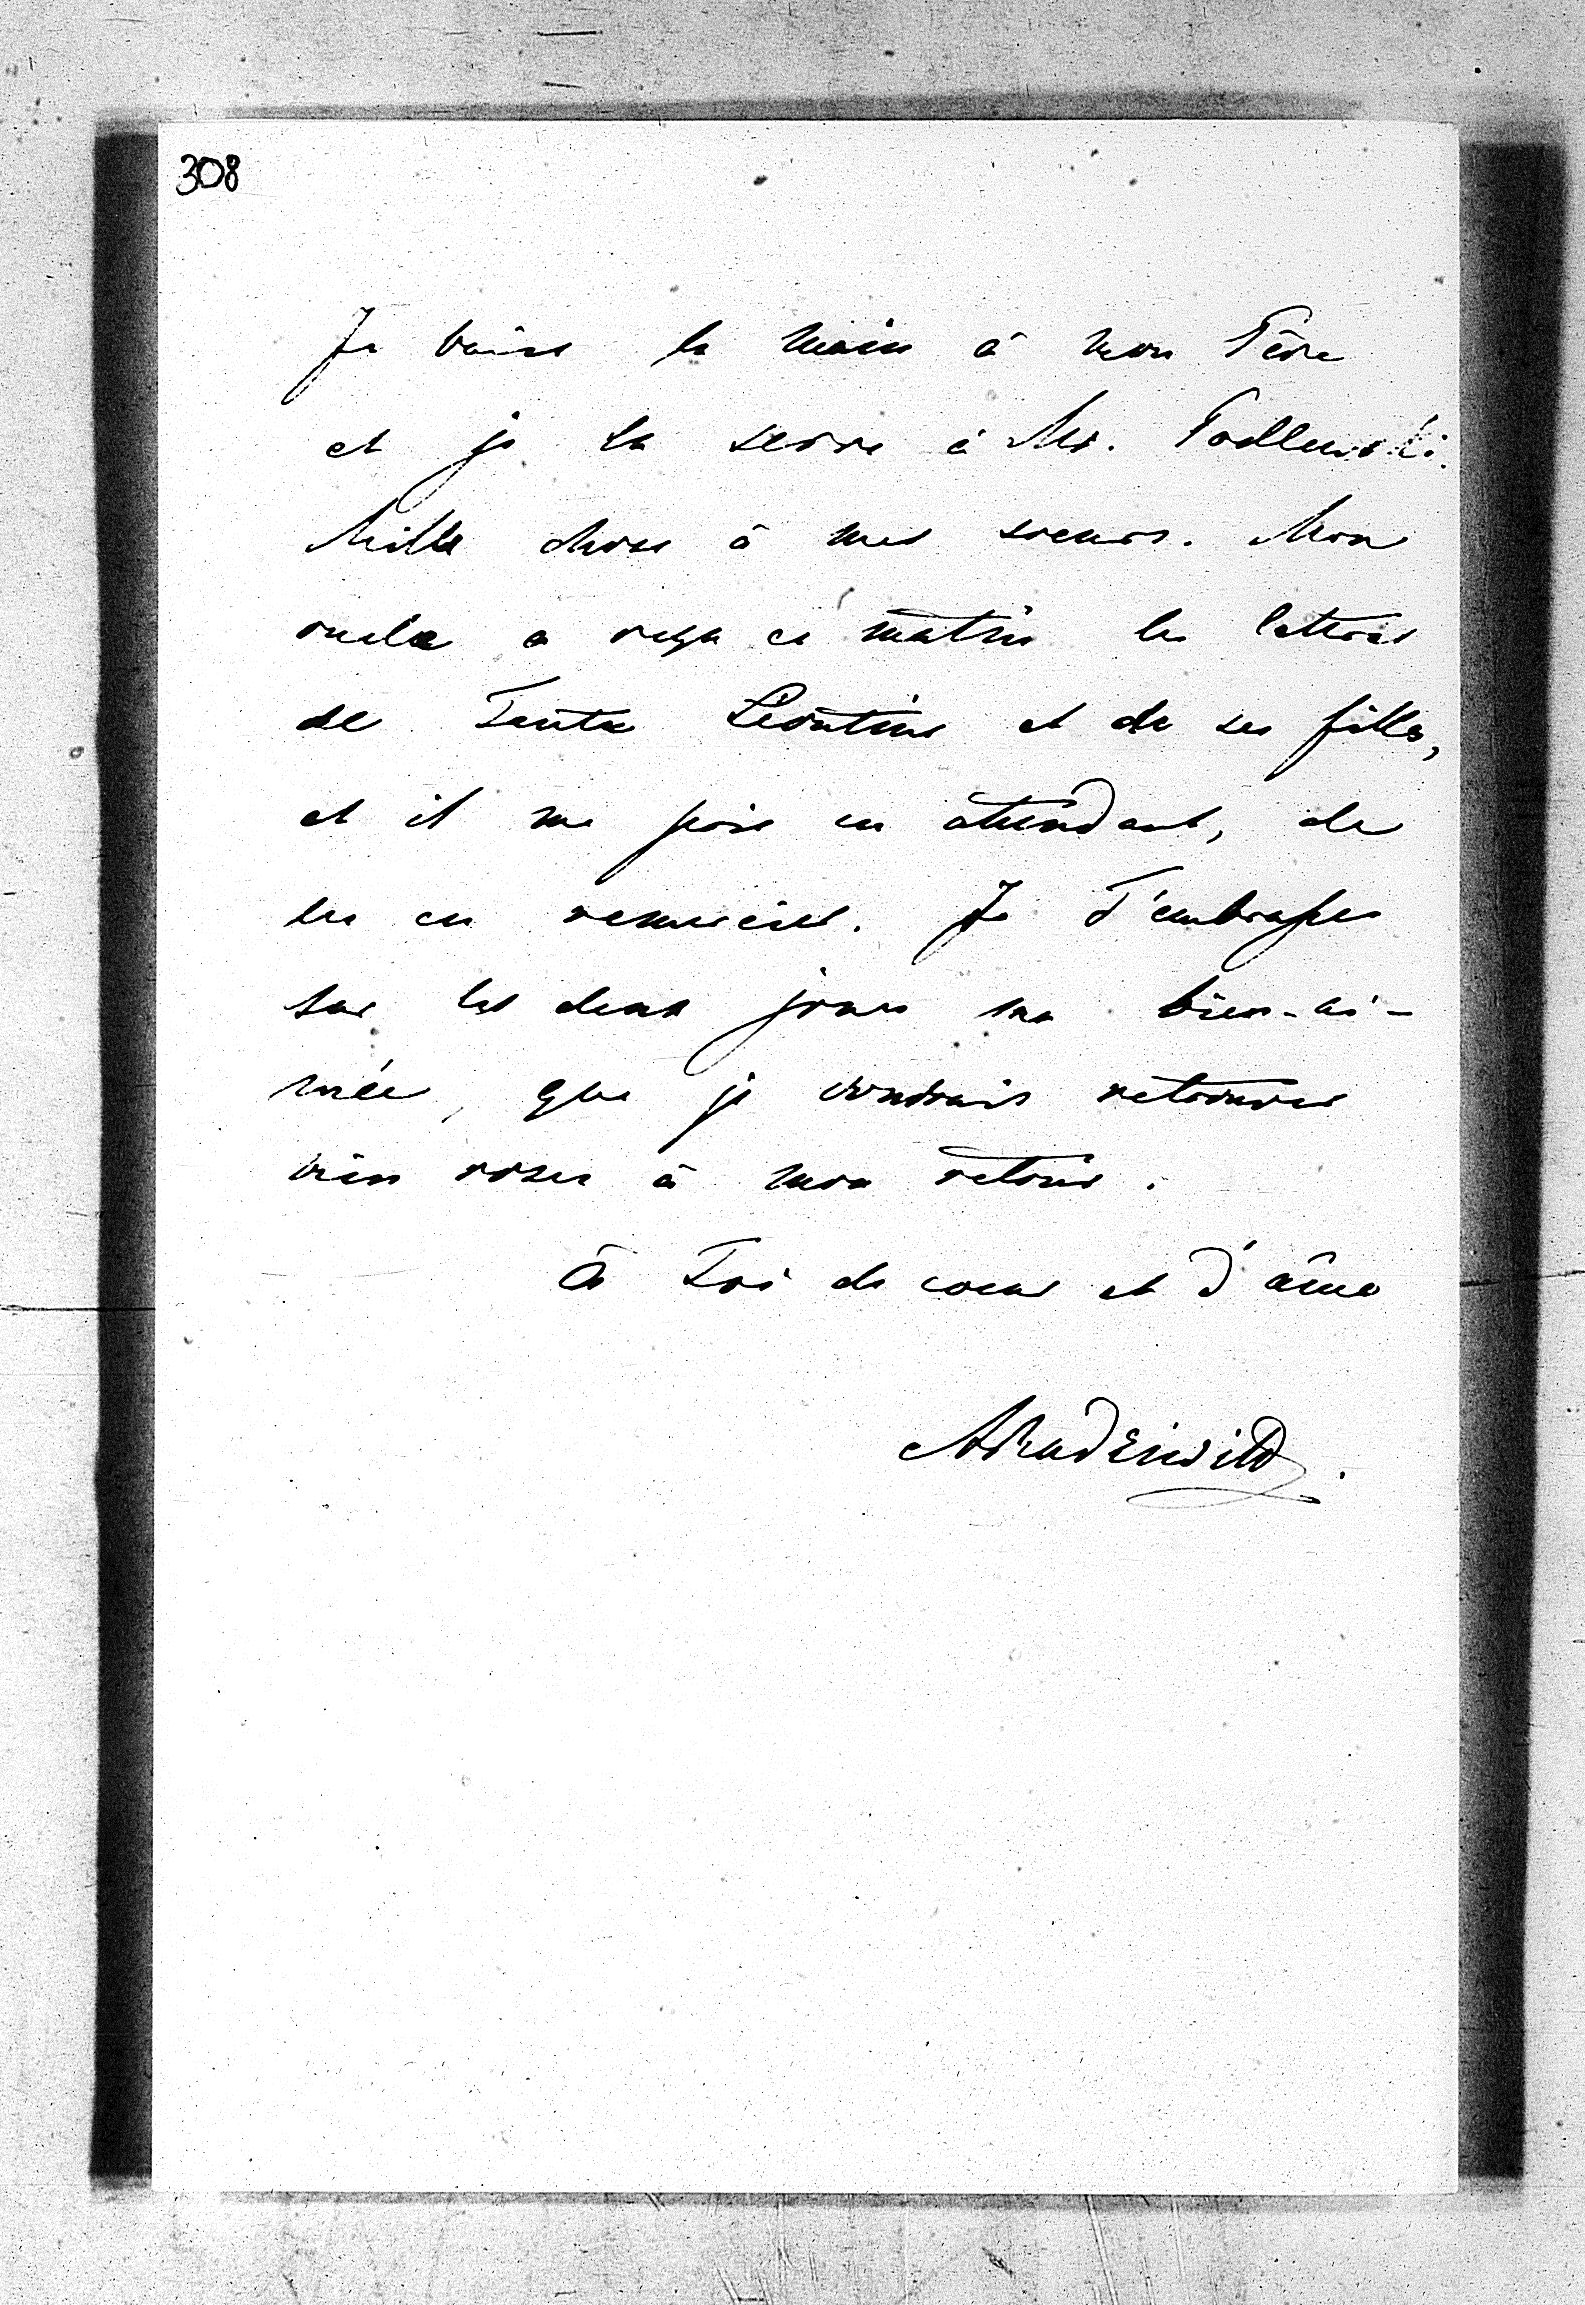 308
Je baise la main à mon Père
et je la serre à Mr. Podlewski.
Mille choses à mes soeurs. Mon
oncle a reçu ce matin les lettres
de Tante Léontine et de ses filles,
et il me prie en attendant, de
les en remercier. Je T'embrasse
sur les deux joues ma bien-ai-
mée, que je voudrais retrouver
bien rose à mon retour.
À Toi de coeur et d'âme